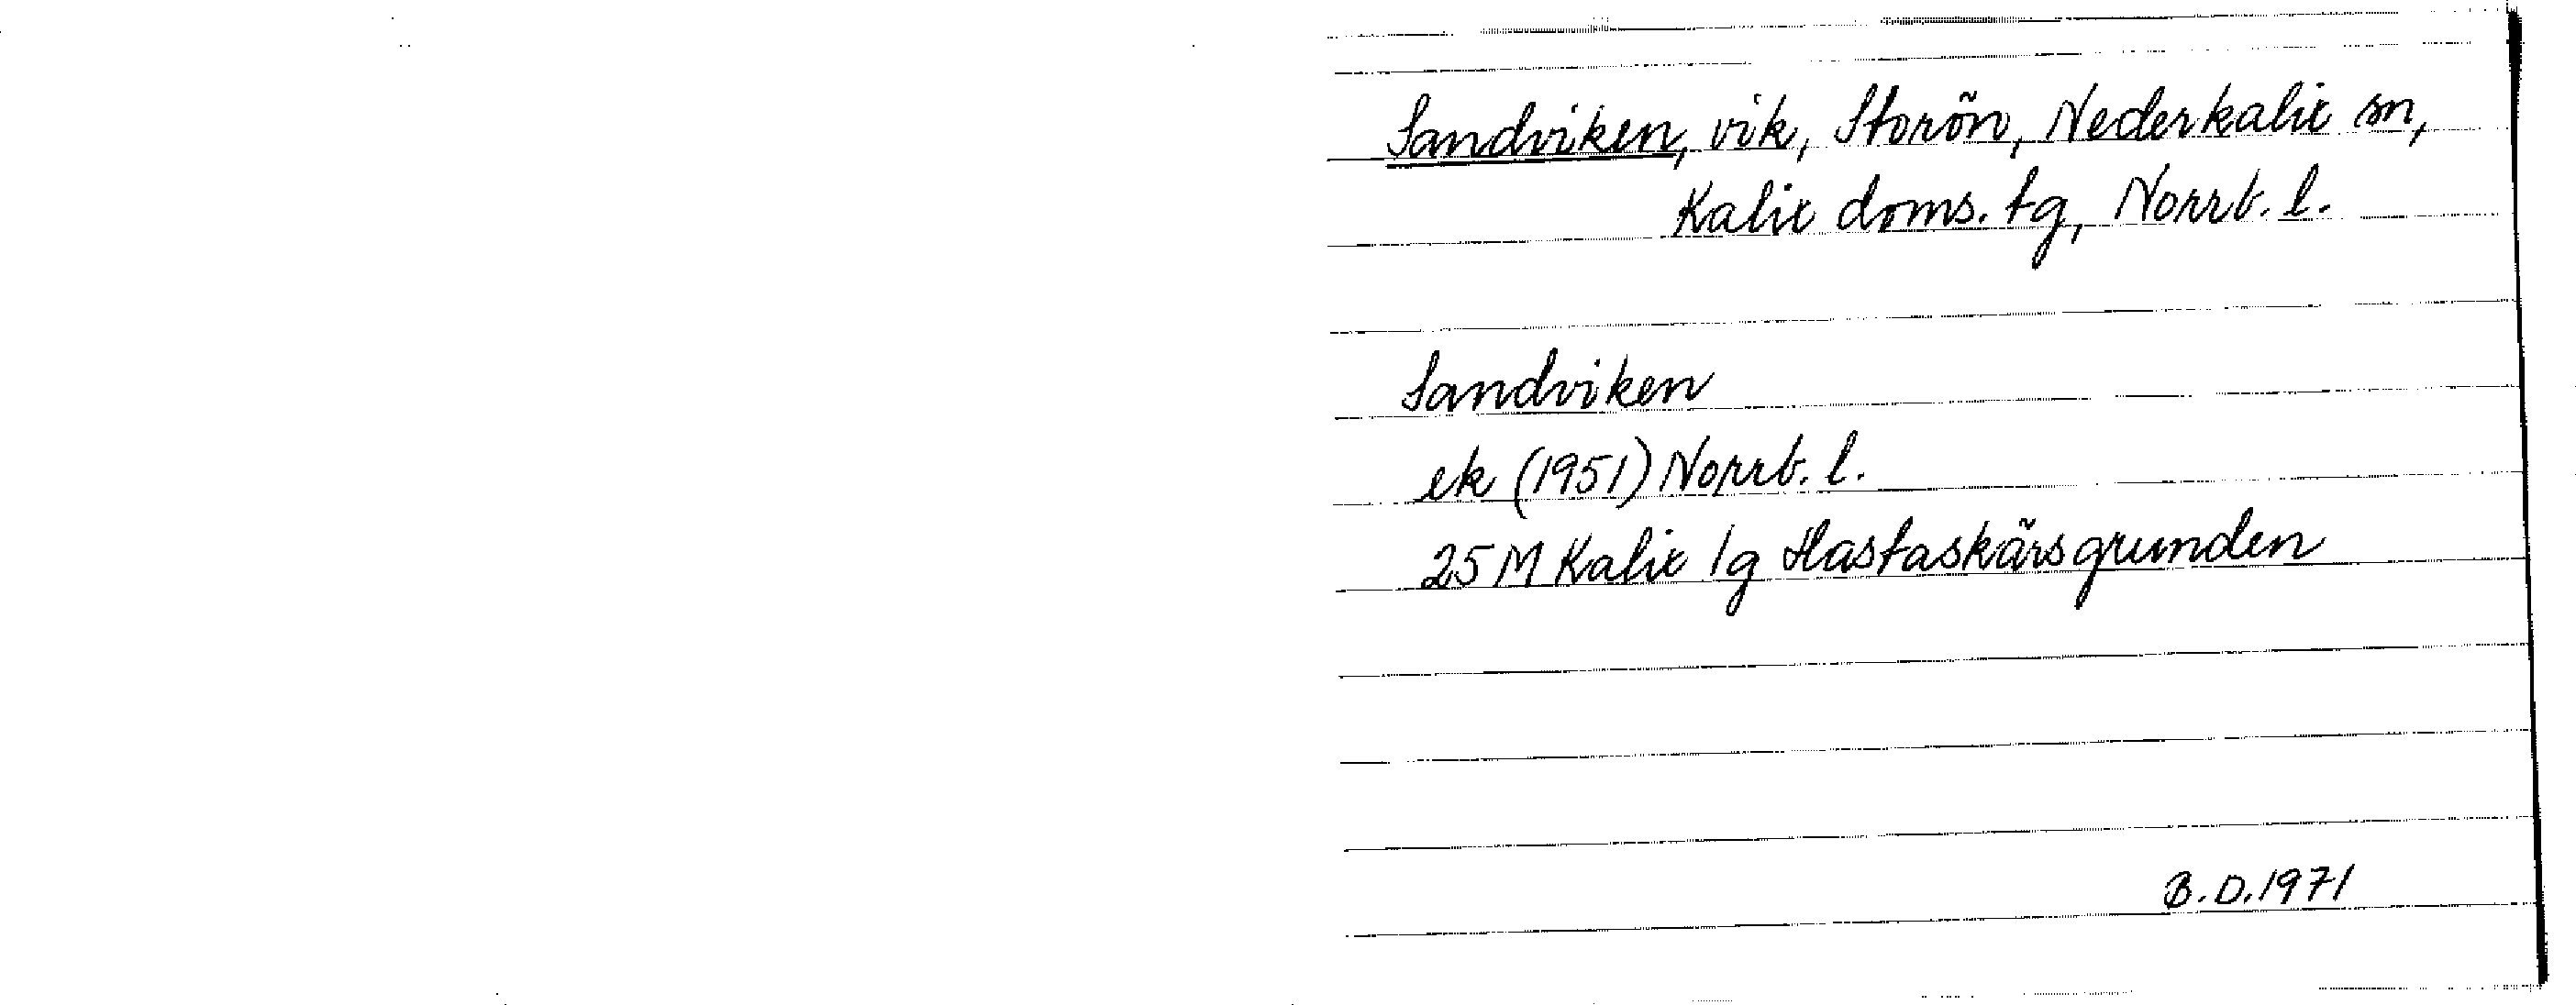 Sandviken, vik, Storön, Nederkalix sn,
Kalix doms. tg, Norrb. l.
Sandviken
ek (1951) Norrb. l.
25 M Kalix 1g Hastaskärsgrunden
B.D.1971